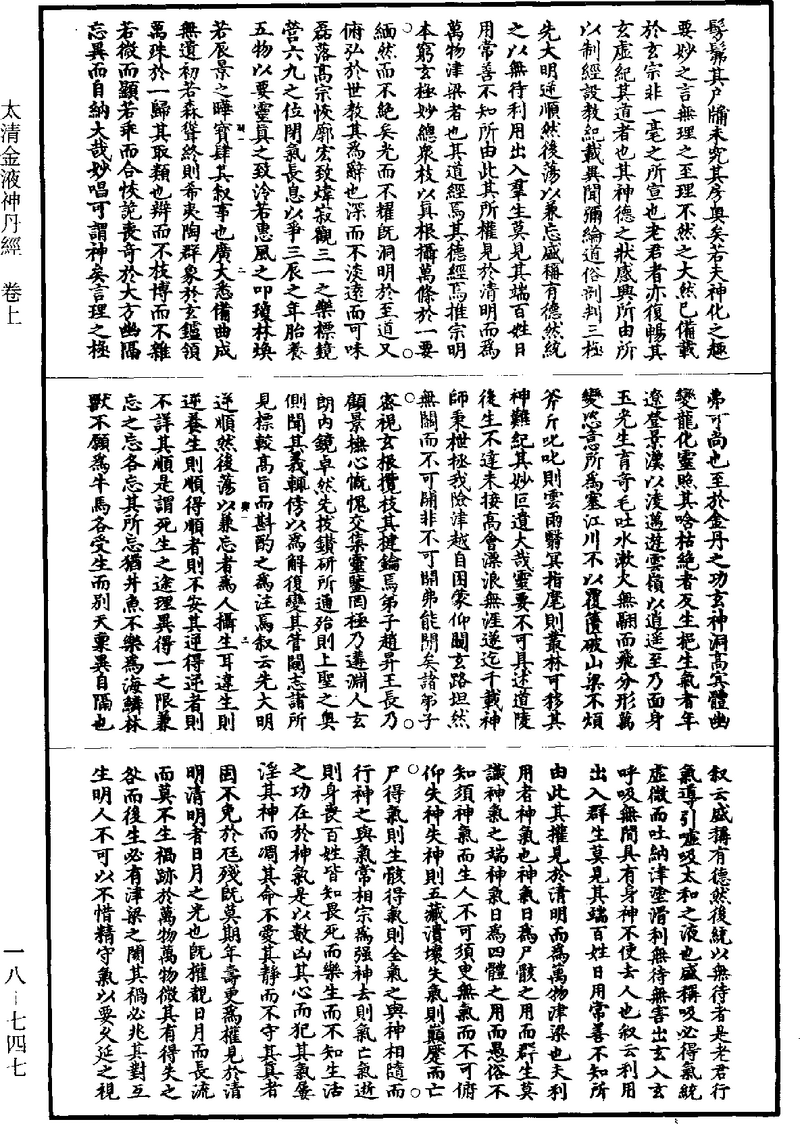 髣髴其戶牖未究其房奧矣若夫神化之趣
要妙之言無理之至理不然之大然已備載
於玄宗非一毫之所宣也老君者亦復暢其
玄虛紀其道者也其神德之狀盛興所由所
以制經設教紀載異聞彌綸道俗剖判三極
先大明逆順然後蕩以兼忘盛稱有德然統
之以無待利用出入羣生莫見其端百姓日
用常善不知所由此其所權見於清明而為
萬物津梁者也其道經焉其德經焉推宗明
本窮玄極妙總衆枝以真根攝萬條於一要
緬然而不絕矣光而不耀既洞明於至道又
俯弘於世教其為辭也深而不淡遠而可味
磊落高宗恢廓宏致煒寂觀三一之樂標鏡
營六九之位閉氣長息以爭三辰之年胎養
五物以要靈真之致泠若惠風之叩瓊林煥
若辰景之曄寶肆其叙事也廣大悉備曲成
無遺初若森聳終則希夷陶群象於玄鑪領
萬殊於一歸其取類也辯而不枝博而不雜
若微而顯若乖而合恢詭喪奇於大方幽隔
忘異而自納大哉妙唱可謂神矣言理之極
弗可尚也至於金丹之功玄神洞高冥體幽
變龍化靈照其唅枯絕者反生挹生氣者年
遼登景漢以淩邁遊雲嶺以逍遥至乃面身
玉光生育奇毛吐水漱火無翮而飛分形萬
變恣意所為塞江川不以覆簣破山梁不煩
斧斤叱叱則雲雨翳冥指麾則叢林可移其
神難紀其妙叵遺大哉靈要不可具述道陵
後生不達未接高會漂浪無涯遂迄千載神
師秉枻拯我險津越自困蒙仰闚玄路坦然
無關而不可闢非不可開弗能開矣諸弟子
密視玄根攬枝其揵鑰焉弟子趙昇王長乃
顧景樵心慨愧交集靈鑒罔極乃邁淵人玄
朗內鏡卓然先拔鑽研所通殆則上聖之奧
側聞其義輒傍以為解復變其管闚志諸所
見標較高旨而斟酌之為注焉叙云先大明
逆順然後蕩以兼忘者為人攝生耳違生則
逆養生則順得順者則不安其逆得逆者則
不詳其順是謂死生之途理異得一之限兼
忘之忘各忘其所忘猶井魚不樂為海鱗林
獸不願為牛馬各受生而別天稟異自隔也
叙云盛稱有德然後統以無待者是老君行
氣導引噓吸太和之液也盛稱吸必得氣統
虛微而吐納津塗滑利無待無害出玄入玄
呼吸無間具有身神不使去人也叙云利用
出入群生莫見其端百姓日用常善不知所
由此其權見於清明而為萬物津梁也夫利
用者神氣也神氣日為尸骸之用而群生莫
識神氣之端神氣日為四體之用而愚俗不
知須神氣而生人不可須臾無氣而不可俯
仰失神失神則五藏潰壞失氣則顛蹷而亡
尸得氣則生骸得氣則全氣之與神相隨而
行神之與氣常相宗為強神去則氣亡氣逝
則身喪百姓皆知畏死而樂生而不知生活
之功在於神氣是以數凶其心而犯其氣屢
淫其神而凋其命不愛其靜而不守其真者
固不免於尪殘既莫期年壽更為權見於清
明清明者日月之光也既權觀日月而長流
而莫不生禍跡於萬物萬物微其有得失之
咎而後生必有津梁之關其禍必兆其對互
生明人不可以不惜精守氣以要久延之視
太清金液神丹經 卷上
一八-七四七